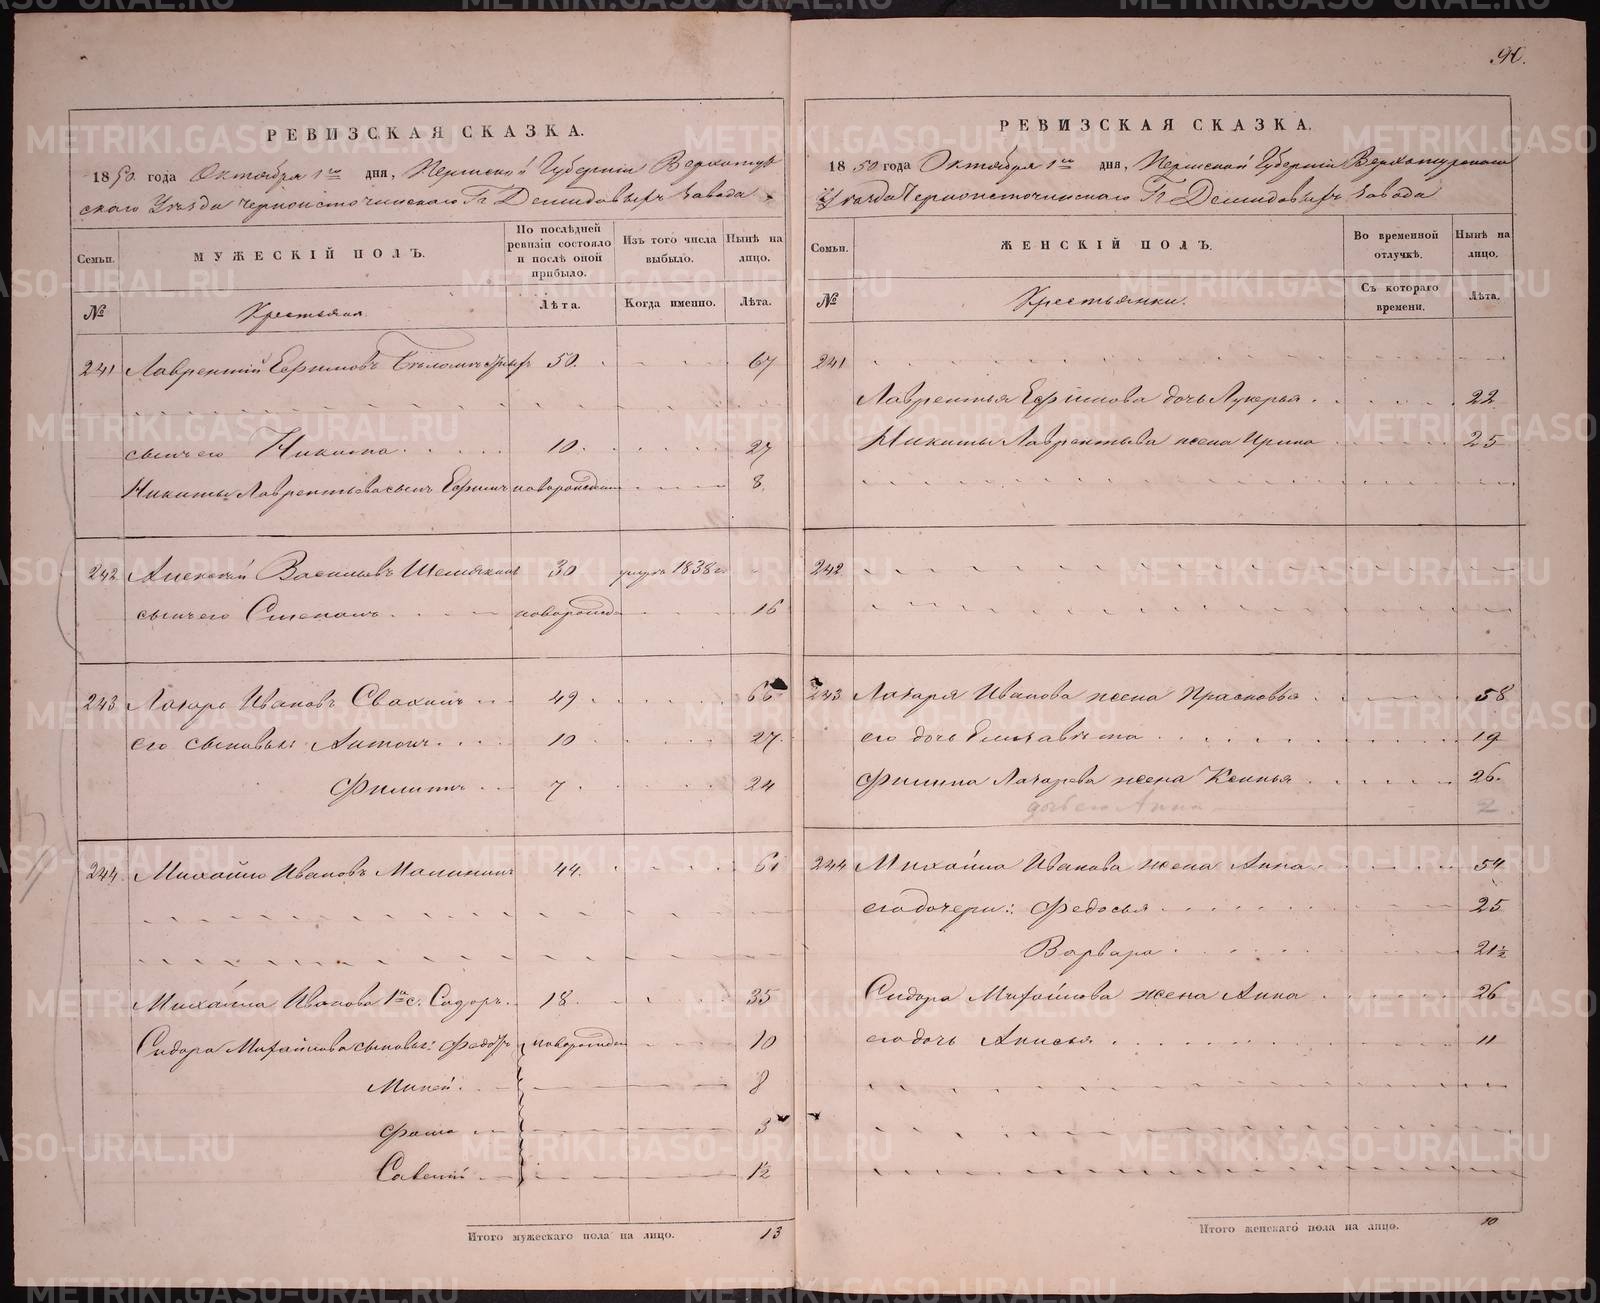 РЕВИЗСКАЯ СКАЗКА.
1850 года Октября 1го дня, Пермской Губерніи Верхотур
скаго Уѣзда Черноисточинскаго Гг Демидовыхъ Завода
Семьи.
МУЖЕСКІЙ ПОЛЪ.
По послѣдней ревизіи состояло и послѣ оной прибыло.
Изъ того числа выбыло.
Нынѣ на лицо.
№
Крестьяне
Лѣта.
Когда именно.
Лѣта.
241 Лаврентій Ефимовъ 50. 67
сынъ его Никита 10. 27
Никиты Лаврентьева сынъ Ефимъ новорожден 8.
242 Алексѣй Васильевъ Шемякинъ 30 умре 1838 г.
сынъ его Степанъ новорожде 16
243 Лазарь Ивановъ Свахинъ 49 66
его сыновья: Антонъ 10 27.
Филиппъ 7. 24
244. Михайло Ивановъ Малининъ 44. 61
Михайла Иванова 1й с. Сидоръ. 18. 35
Сидора Михайлова сыновья: Федоръ новорожден 10
Миней. 8
Фома 3
Савелій 1½
Итого мужескаго пола на лицо. 13
90.
РЕВИЗСКАЯ СКАЗКА.
1850 года Октября 1го дня, Пермской Губерніи Верхотурскаго
Уѣзда Черноисточинскаго Гг Демидовыхъ Завода
Семьи.
ЖЕНСКІЙ ПОЛЪ.
Во временной отлучкѣ.
Нынѣ на лицо.
№
Крестьянки.
Съ котораго времени.
Лѣта.
241
Лаврентья Ефимова дочь Лукерья 22
Никиты Лаврентьева жена Ирина 25
242
243 Лазаря Иванова жена Прасковья 58
его дочь Елизавѣта 19
Филипа Лазарева жена Ксенья 26.
дочь его Анна 2
244 Михайла Иванова жена Анна 54
его дочери: Федосья 25
Варвара 21½
Сидора Михайлова жена Анна 26
его дочь Анисья 11
Итого женскаго пола на лицо. 10
METRIKI.GASO-URAL.RU